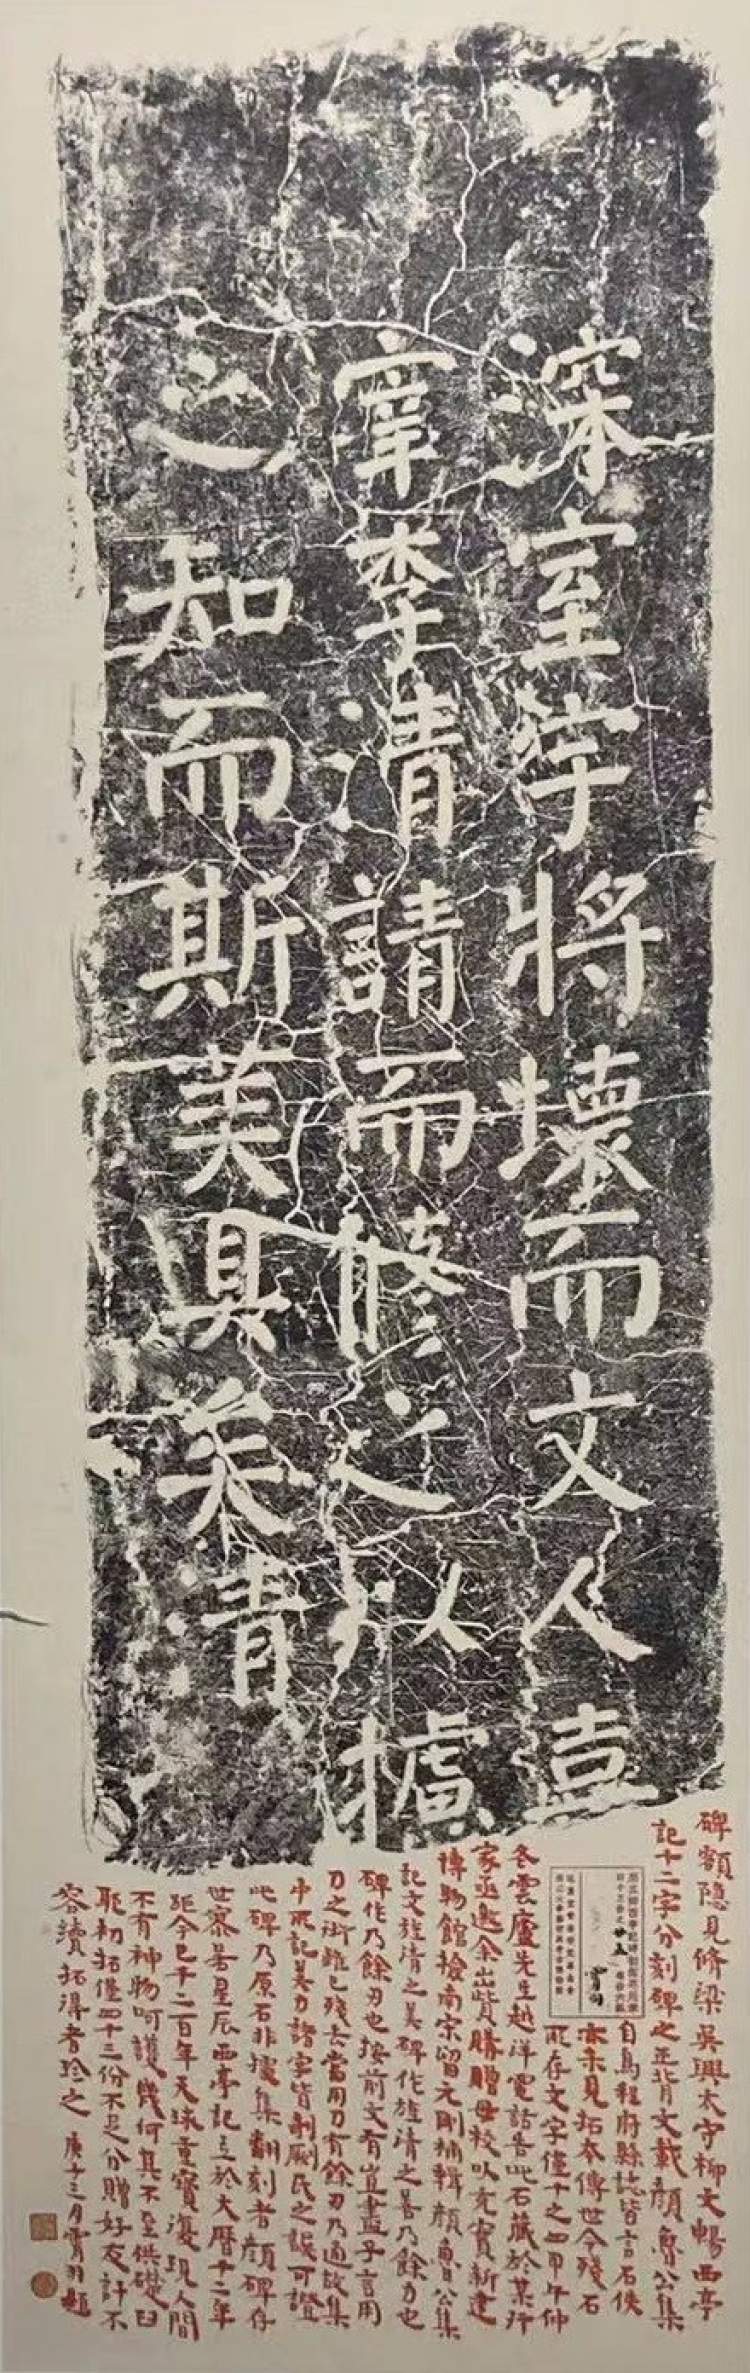 深室宇將壞而文人喜
宰李清請而修之以攄
之知而斯美具矣清
碑額隱見脩梁吳興太守柳文暢西亭
記十二字分刻碑之正背文載顏魯公集
自烏程府縣誌皆言石佚
亦未見拓本傳世今殘石
所存文字僅十之四甲午仲
冬雲廬先生越洋電話告此石藏於某行
家亟邀余出貲購贈母校以充實新建
博物館撿南宋留元剛補輯顏魯公集
記文旌清之美碑作旌清之善乃餘力也
碑作乃餘刃也按前文有豈盡子言用
刀之術雖已殘去當用刀有餘刃乃通故集
中所記美力諸字皆剞劂氏之誤可證
此碑乃原石非據集翻刻者顏碑存
世寥若星辰西亭記立於大曆十二年
距今已千二百年天球重寶復現人間
不有神物呵護幾何其不至供礎臼
耶初拓僅四十三份不足分贈好友計不
容續拓得者珍之 庚子三月霄羽題